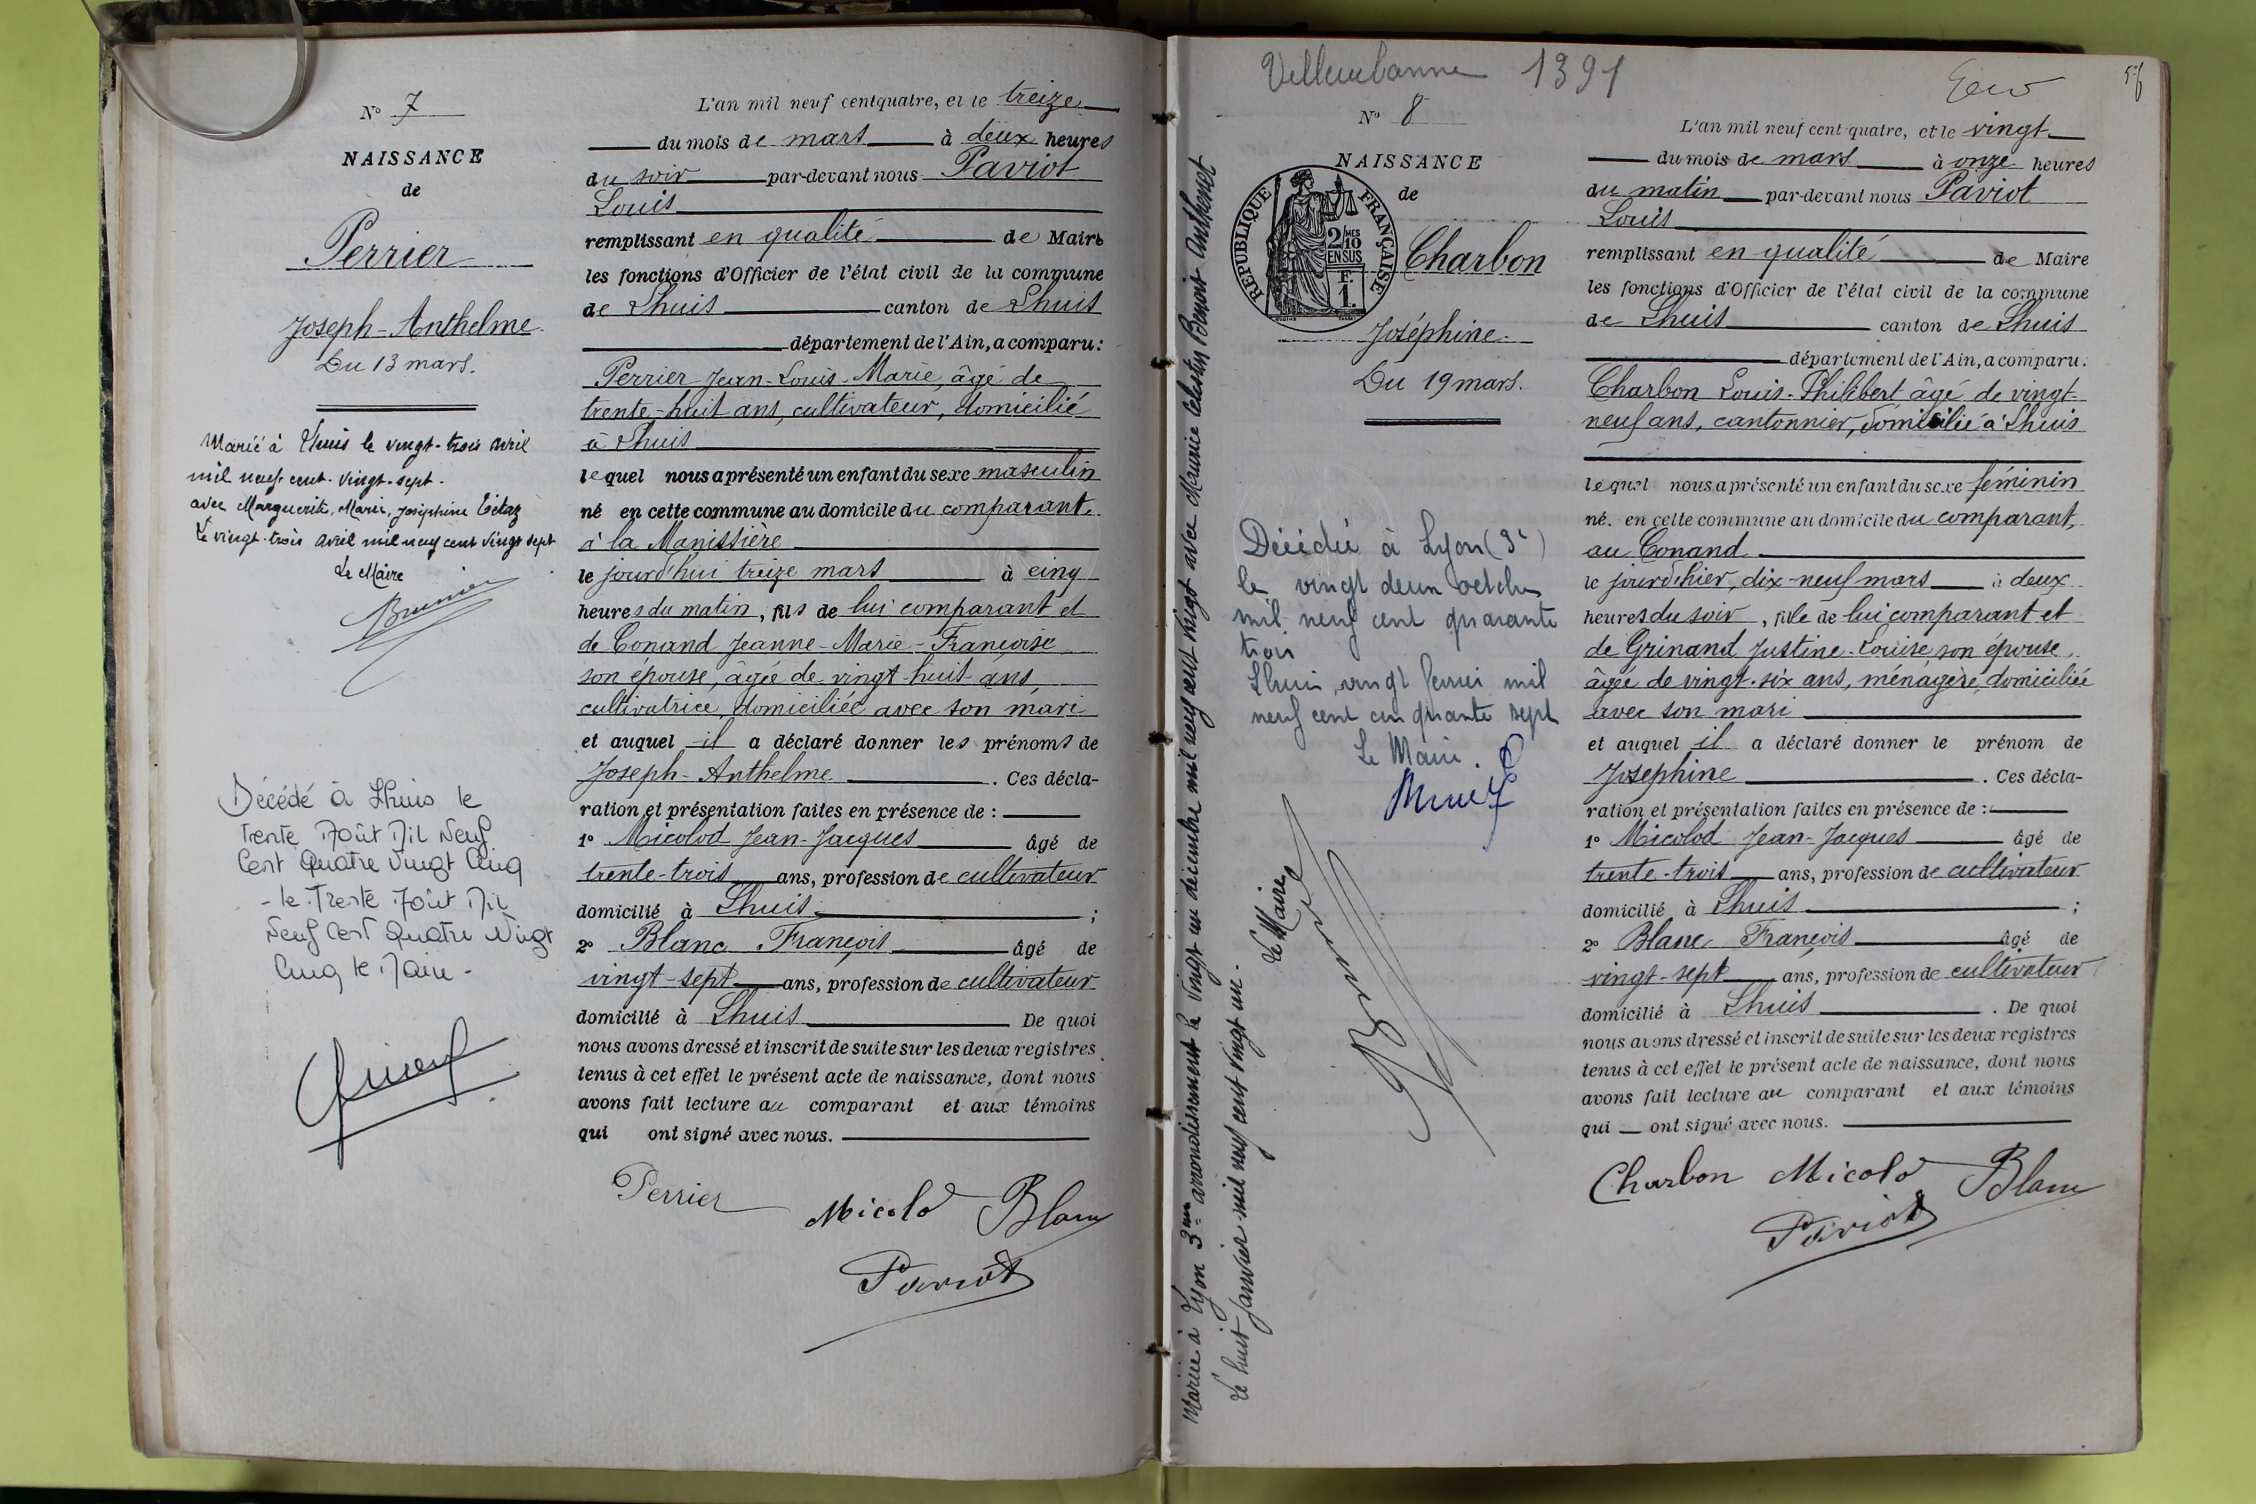 N° 7
NAISSANCE
de
Perrier
Joseph-Anthelme
Du 13 mars.
Marié à Lhuis le vingt-trois avril
mil neuf cent vingt-sept.
avec Marguerite, Marie, Joséphine
Le vingt-trois avril mil neuf cent vingt sept
Le Maire
Décédé à Lhuis le
trente Août Mil Neuf
Cent Quatre Vingt Cinq
- le Trente Août Mil
Neuf Cent Quatre Vingt
Cinq le Maire -
L'an mil neuf cent quatre, et le treize
du mois de mars à deux heures
du soir par-devant nous Paviot
Louis
remplissant en qualité de Maire
les fonctions d'Officier de l'état civil de la commune
de Lhuis canton de Lhuis
département de l'Ain, a comparu :
Perrier Jean-Louis-Marie, âgé de
trente-huit ans, cultivateur, domicilié
à Lhuis
lequel nous a présenté un enfant du sexe masculin
né en cette commune au domicile du comparant,
à la Manissière
le jourd'hui treize mars à cinq
heures du matin, fils de lui comparant et
de Conand Jeanne-Marie-Françoise
son épouse, âgée de vingt-huit ans,
cultivatrice, domiciliée avec son mari
et auquel il a déclaré donner les prénoms de
Joseph-Anthelme. Ces décla-
ration et présentation faites en présence de :
1° Micolod Jean-Jacques âgé de
trente-trois ans, profession de cultivateur
domicilié à Lhuis ;
2° Blanc François âgé de
vingt-sept ans, profession de cultivateur
domicilié à Lhuis De quoi
nous avons dressé et inscrit de suite sur les deux registres
tenus à cet effet le présent acte de naissance, dont nous
avons fait lecture au comparant et aux témoins
qui ont signé avec nous.
Perrier Micolo Blanc
Paviot
Villeurbanne 1391
N° 8
NAISSANCE
de
REPUBLIQUE FRANÇAISE
2/10 MES
EN SUS
1 F.
Charbon
Joséphine
Du 19 mars.
Mariée à Lyon 3ème arrondissement le vingt un décembre mil neuf cent vingt avec Maurice Célestin Benoit Anthemet
Le huit janvier mil neuf cent vingt un.
Le Maire
Décédée à Lyon (3e)
le vingt deux octobre
mil neuf cent quarante
trois
Lhuis, vingt février mil
neuf cent cinquante sept
Le Maire.
L'an mil neuf cent quatre, et le vingt
du mois de mars à onze heures
du matin par-devant nous Paviot
Louis
remplissant en qualité de Maire
les fonctions d'Officier de l'état civil de la commune
de Lhuis canton de Lhuis
département de l'Ain, a comparu :
Charbon Louis-Philibert âgé de vingt-
neuf ans, cantonnier, domicilié à Lhuis
lequel nous a présenté un enfant du sexe féminin
né en cette commune au domicile du comparant,
au Conand
le jourd'hier, dix-neuf mars à deux
heures du soir, fille de lui comparant et
de Grinand Justine-Louise son épouse,
âgée de vingt-six ans, ménagère, domiciliée
avec son mari
et auquel il a déclaré donner le prénom de
Joséphine. Ces décla-
ration et présentation faites en présence de :
1° Micolod Jean-Jacques âgé de
trente-trois ans, profession de cultivateur
domicilié à Lhuis ;
2° Blanc François âgé de
vingt-sept ans, profession de cultivateur
domicilié à Lhuis. De quoi
nous avons dressé et inscrit de suite sur les deux registres
tenus à cet effet le présent acte de naissance, dont nous
avons fait lecture au comparant et aux témoins
qui ont signé avec nous.
Charbon Micolo Blanc
Paviot